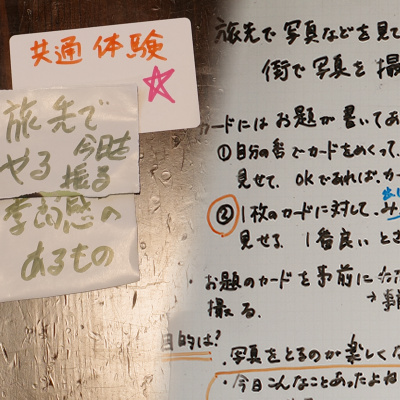 共通体験
旅先で
やる
撮る
季節感の
あるもの
旅先で写真などを見て
街で写真を撮
カードにはお題が書いてあ
①自分の番でカードをめくって、
見せて、OKであれば、カ
② 1枚のカードに対して、み
見せる。1番良いとさ
お題のカードを事前に
撮る。
→事前
目的は?
・写真をとるのが楽しくな
・今日こんなことあったよね